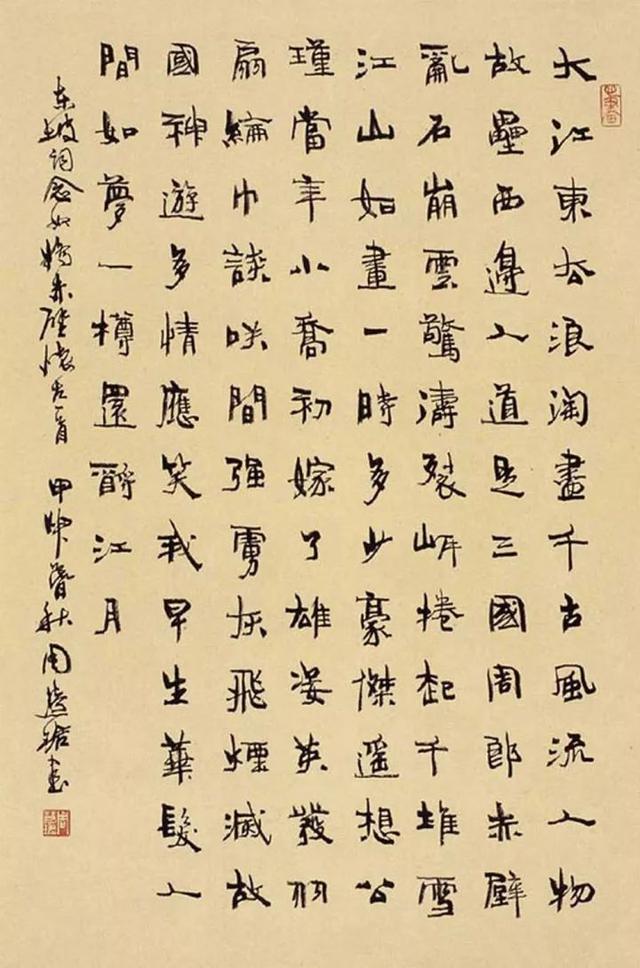 大江東去浪淘盡千古風流人物
故壘西邊人道是三國周郎赤壁
亂石崩雲驚濤裂岸捲起千堆雪
江山如畫一時多少豪傑遥想公
瑾當年小喬初嫁了雄姿英發羽
扇綸巾談咲間强虜灰飛煙滅故
國神遊多情應笑我早生華髮人
間如夢一樽還酹江月
东坡词念奴嬌赤壁懷古一首 甲申秋周慧珺书